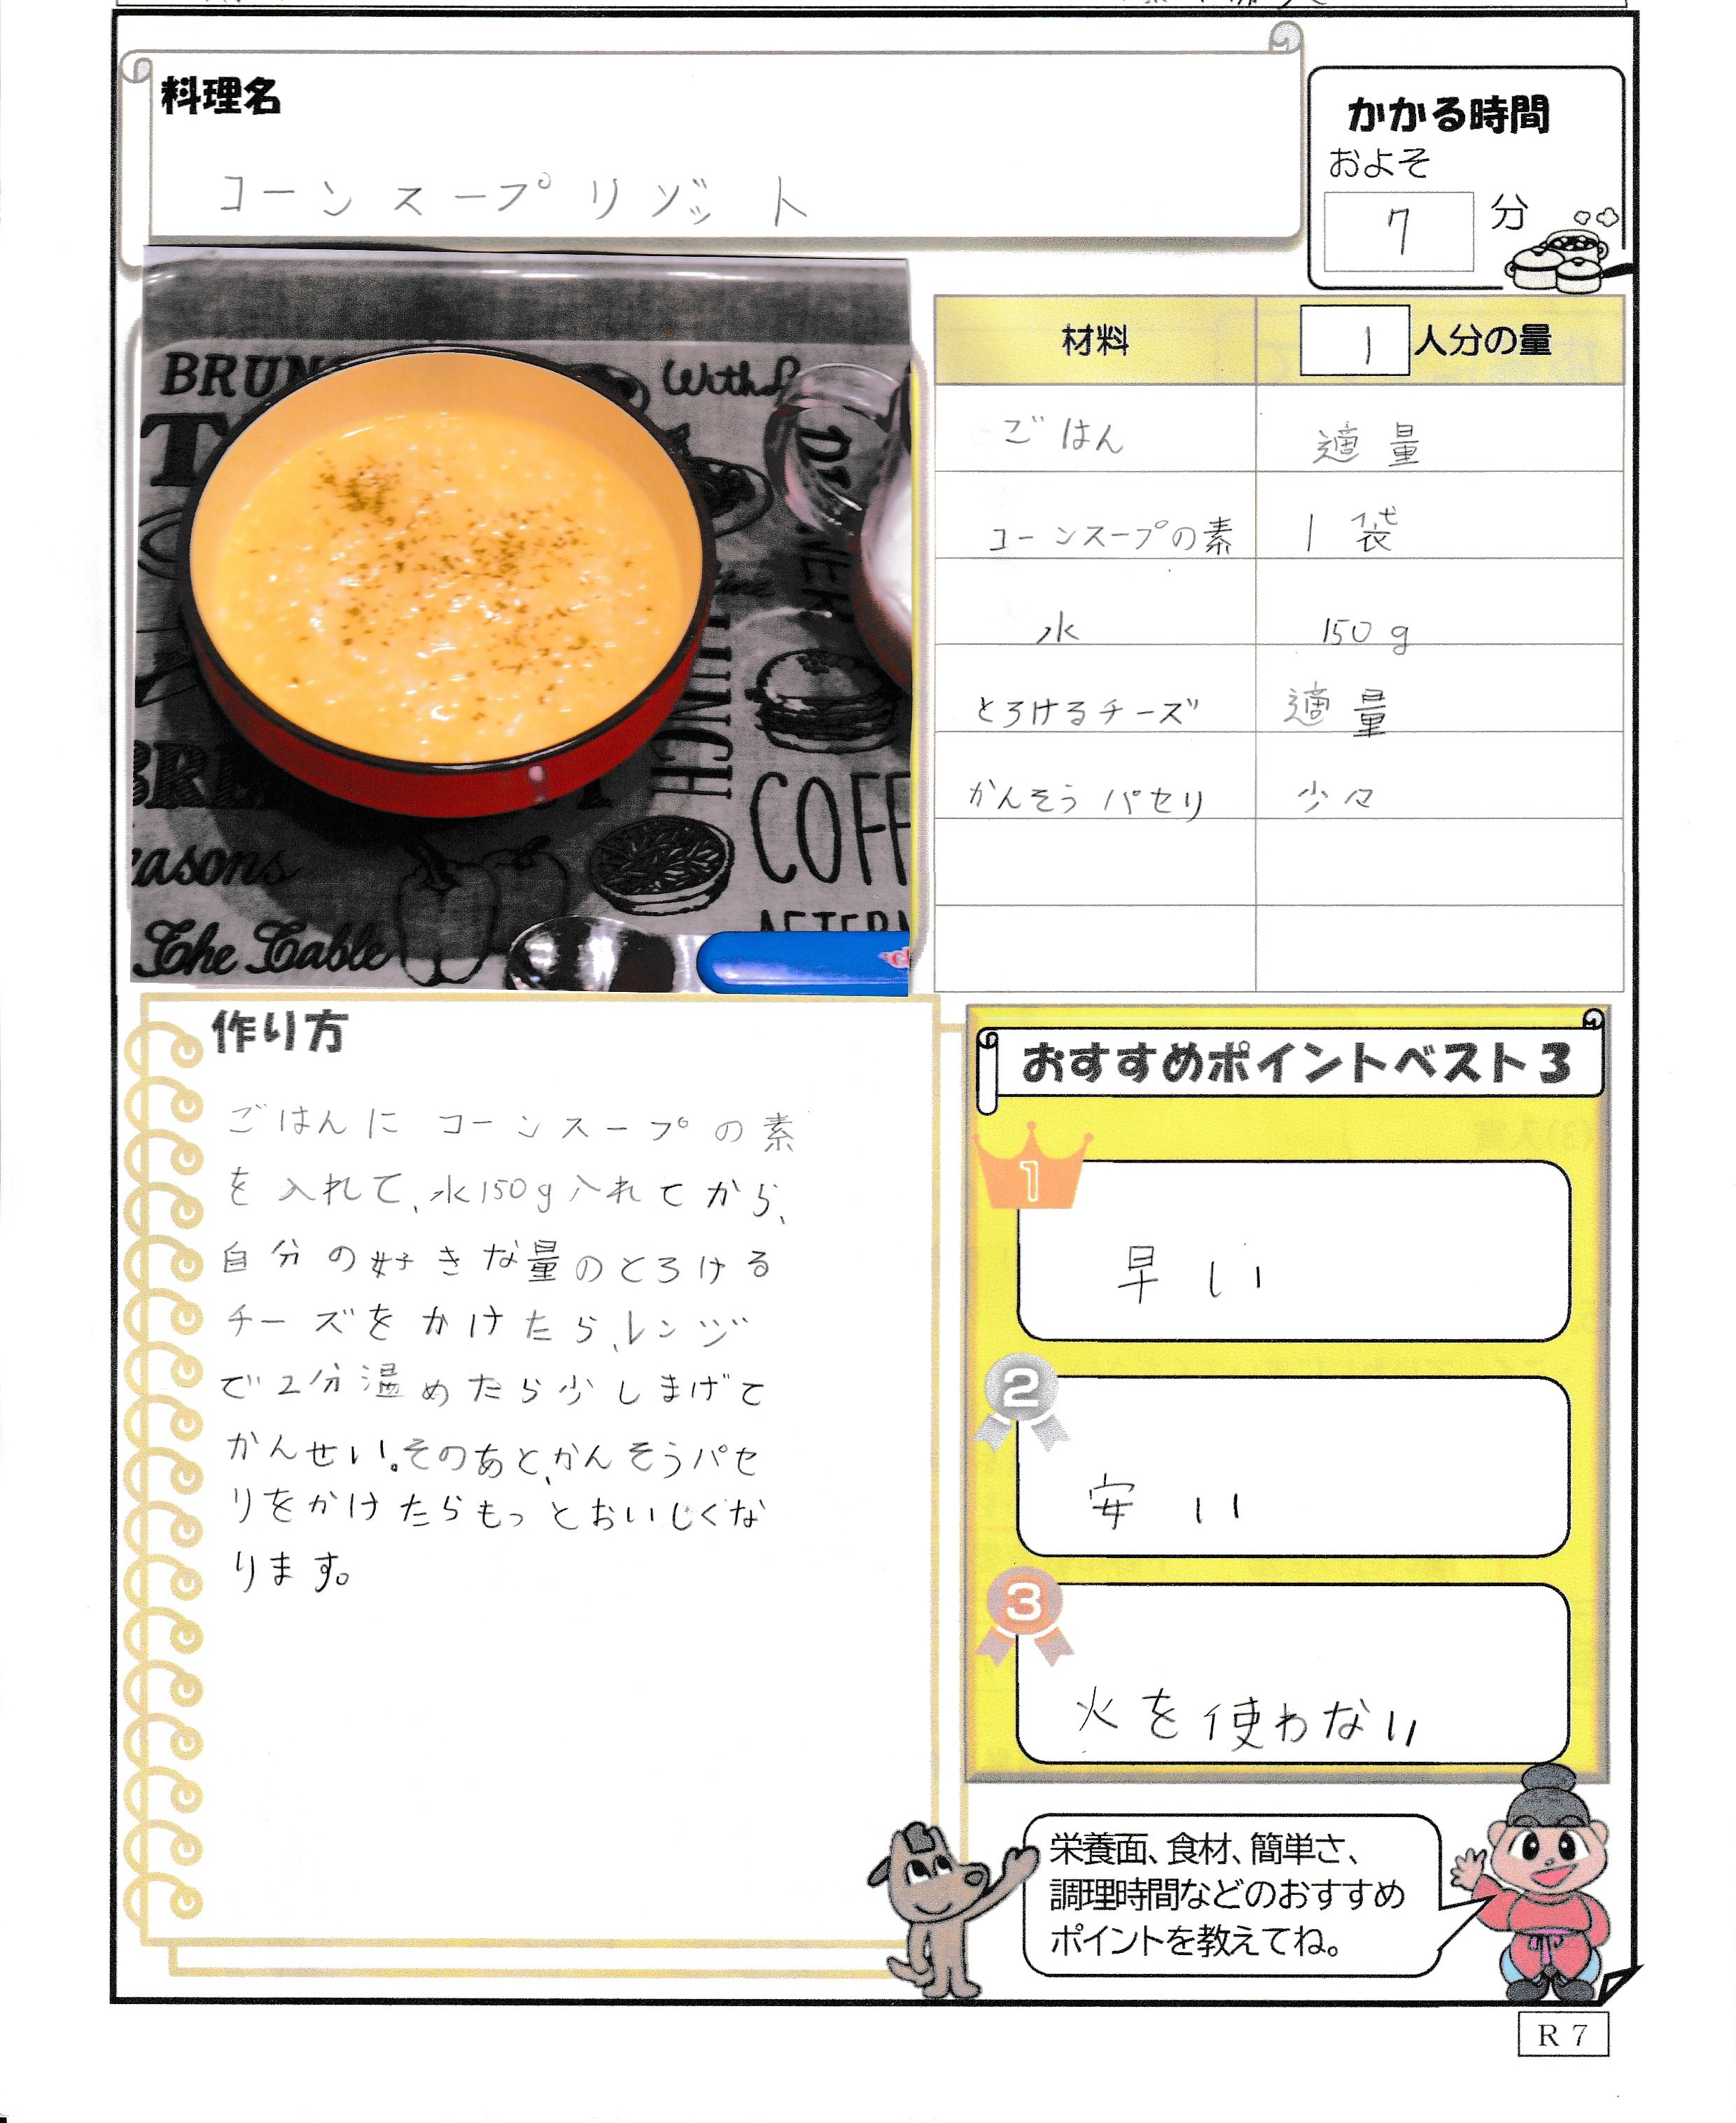 料理名
コーンスープリゾット
かかる時間
およそ
7 分
材料 1 人分の量
ごはん 適量
コーンスープの素 1袋
水 150g
とろけるチーズ 適量
かんそうパセリ 少々
With
COFF
The Table
作り方
ごはんに コーンスープの素
を入れて、水150g入れてから、
自分の好きな量のとろける
チーズをかけたら、レンジ
で2分温めたら少しまげて
かんせい。そのあと、かんそうパセ
リをかけたらもっとおいしくな
ります。
おすすめポイントベスト3
1
早い
2
安い
3
火を使わない
栄養面、食材、簡単さ、
調理時間などのおすすめ
ポイントを教えてね。
R 7